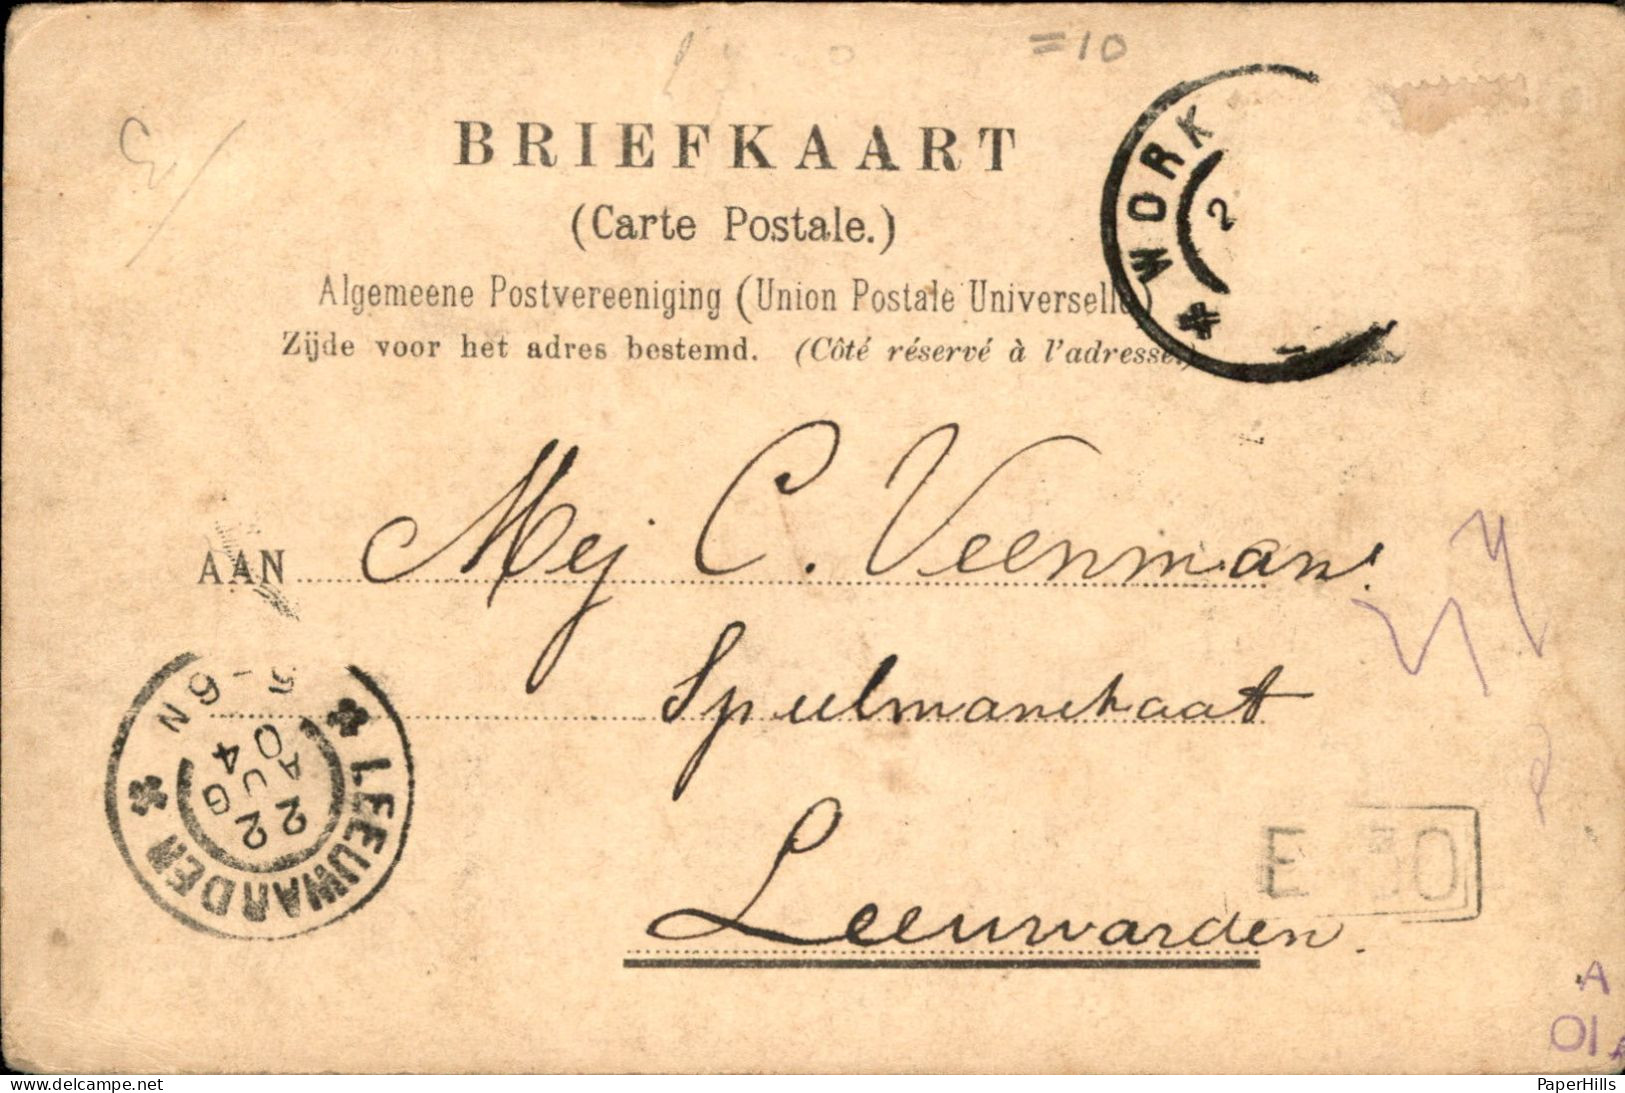 =10
BRIEFKAART
(Carte Postale.)
Algemeene Postvereeniging (Union Postale Universelle)
Zijde voor het adres bestemd. (Côté réservé à l'adresse.)
WORK
2
AAN Mej C. Veenman
Speelmanstraat
Leeuwarden.
LEEUWARDEN
22 AUG 04
-6N
E 50
A
01
PaperHills